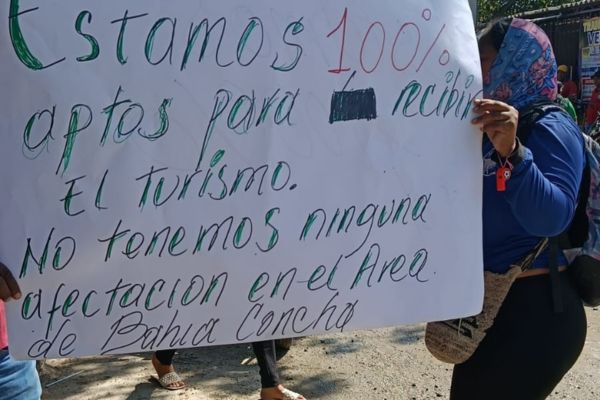 Estamos 100%
aptos para recibir
El Turismo.
No tenemos ninguna
afectacion en el Area.
de Bahia Concha